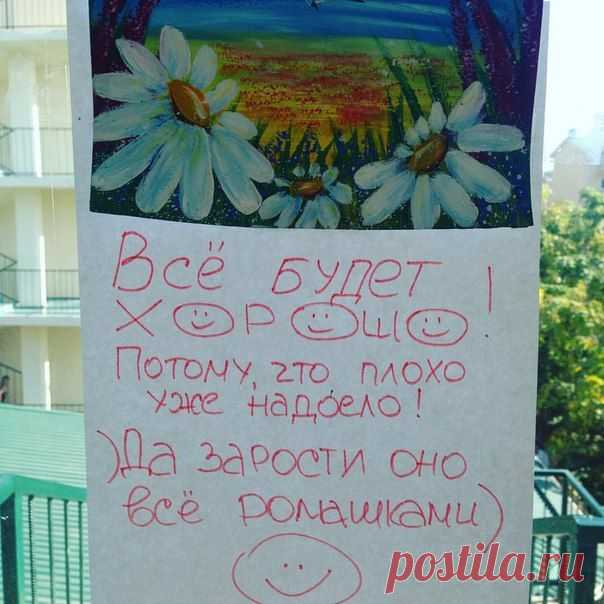 Всё будет
хорошо!
Потому, что плохо
уже надоело!
)Да зарости оно
всё ромашками)
postila.ru